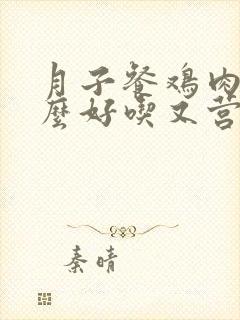 月子餐鸡肉
麼好喫又营
秦晴